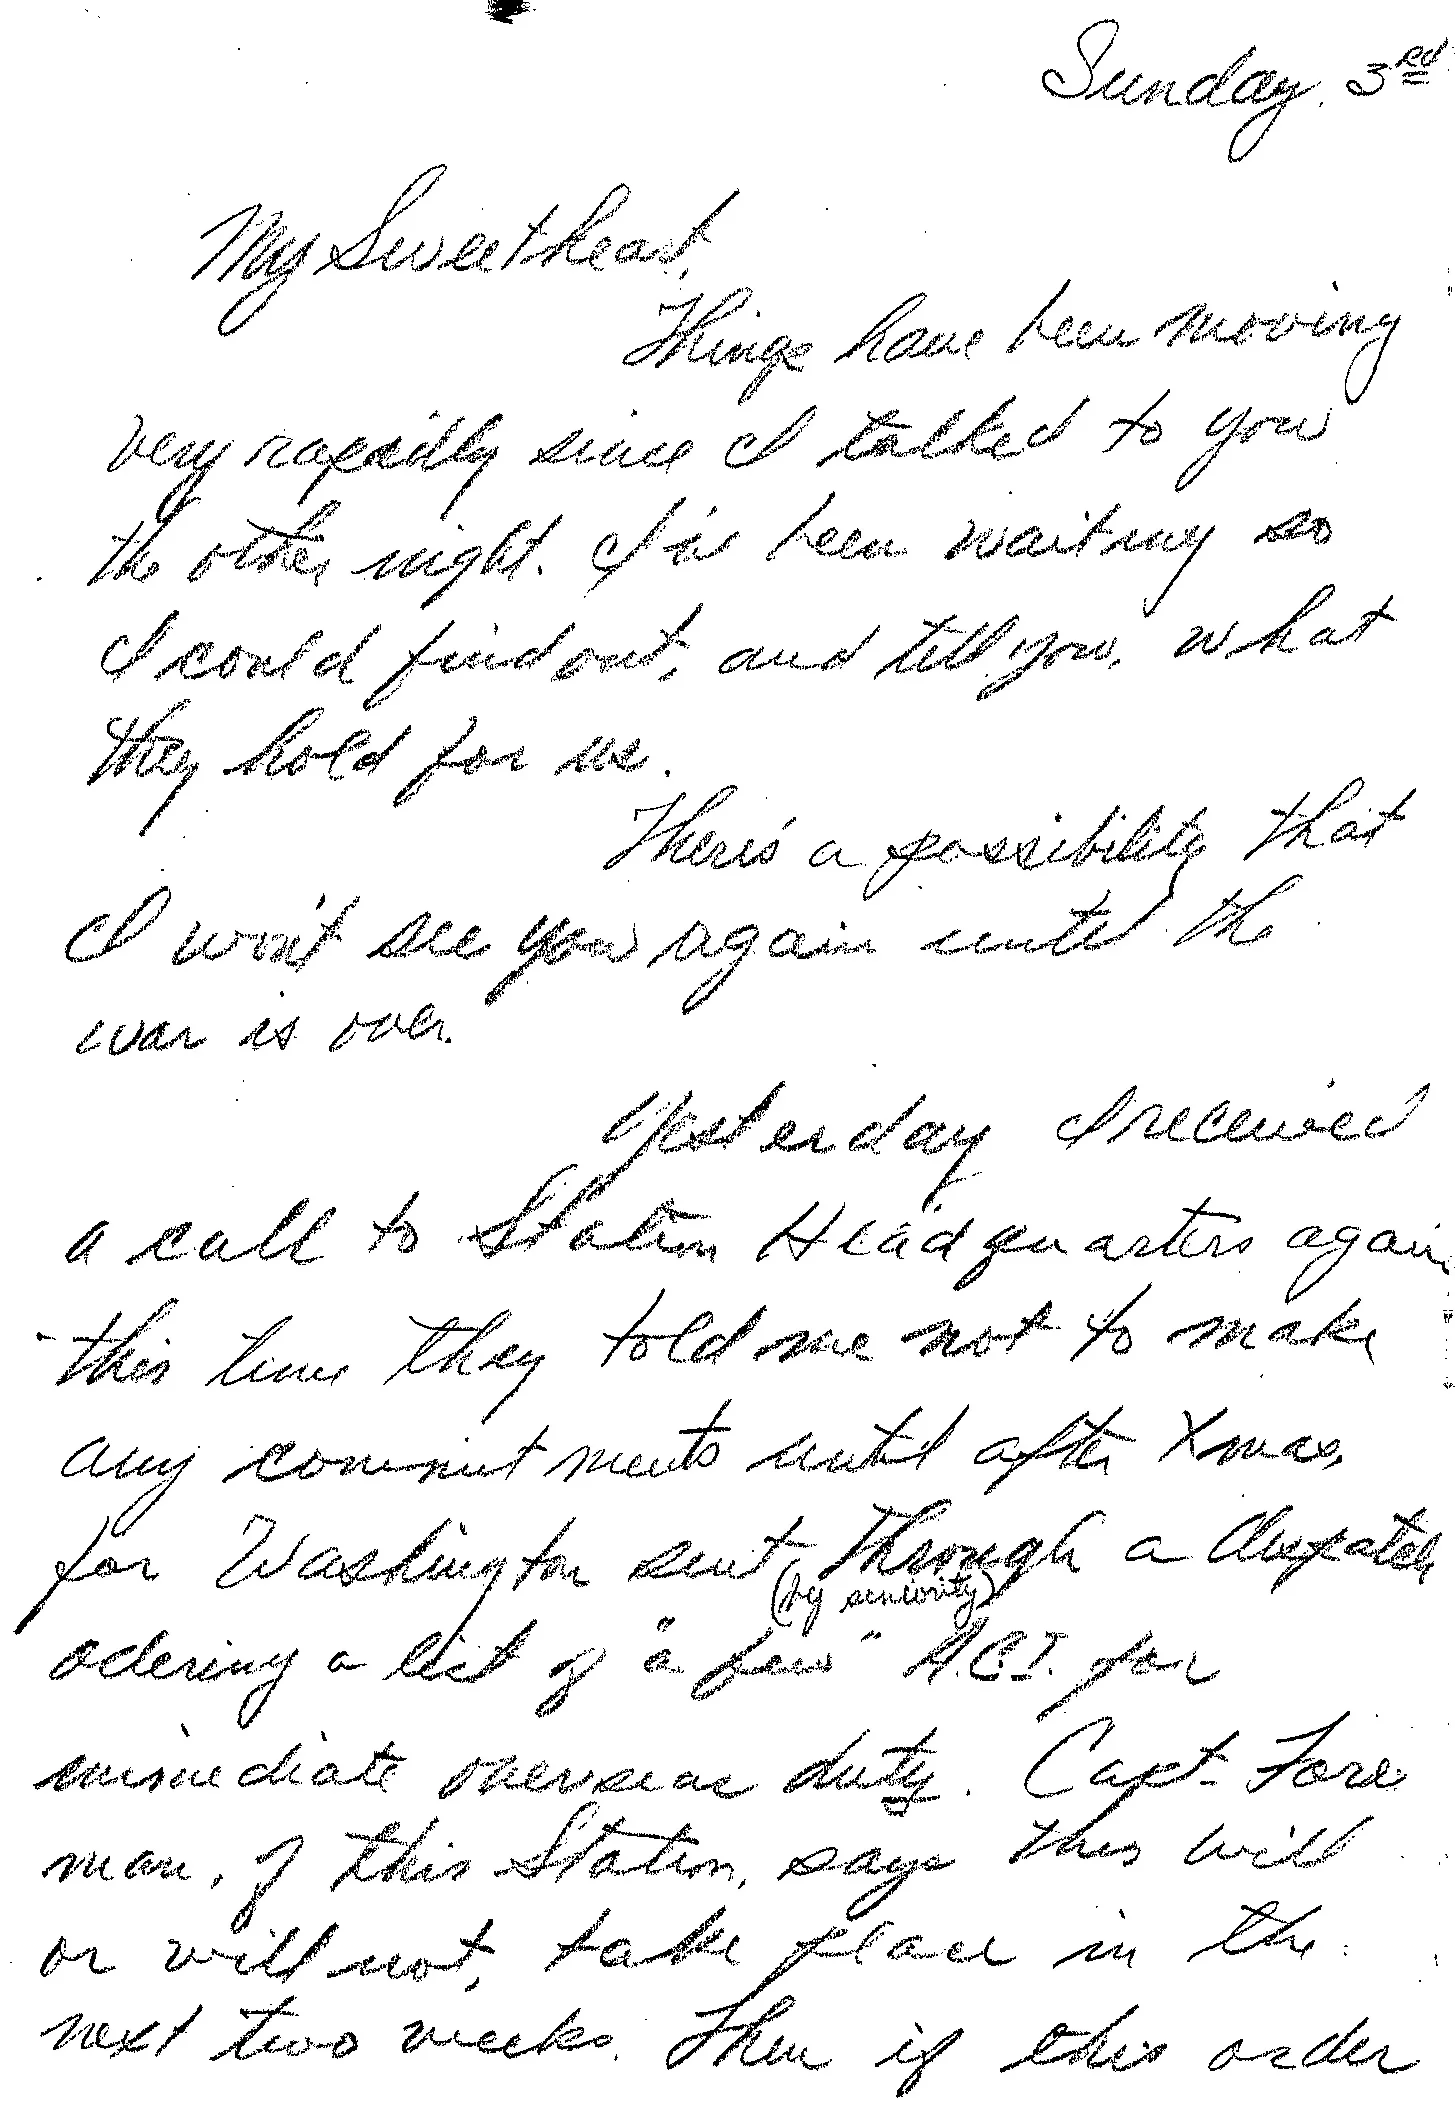 Sunday. 3rd
My Sweetheart,
Things have been moving
very rapidly since I talked to you
the other night. I've been waiting so
I could find out, and tell you, what
they hold for us.
There's a possibility that
I won't see you again until the
war is over.
Yesterday I received
a call to Station Headquarters again
this time they told me not to make
any commitments until after Xmas,
for Washington sent through a dispatch
(by seniority)
odering a list of "a few" A.C.I. for
immediate overseas duty. Capt. Fore
man, of this Station, says this will
or will not, take place in the
next two weeks. Then if this order